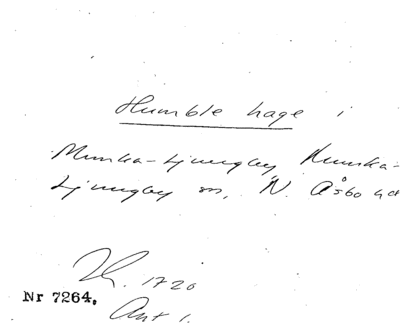 Humble hage i
Munka-Ljungby Munka-
Ljungby sn, N. Åsbo hd
Th. 1720
Nr 7264.
Ant 1.